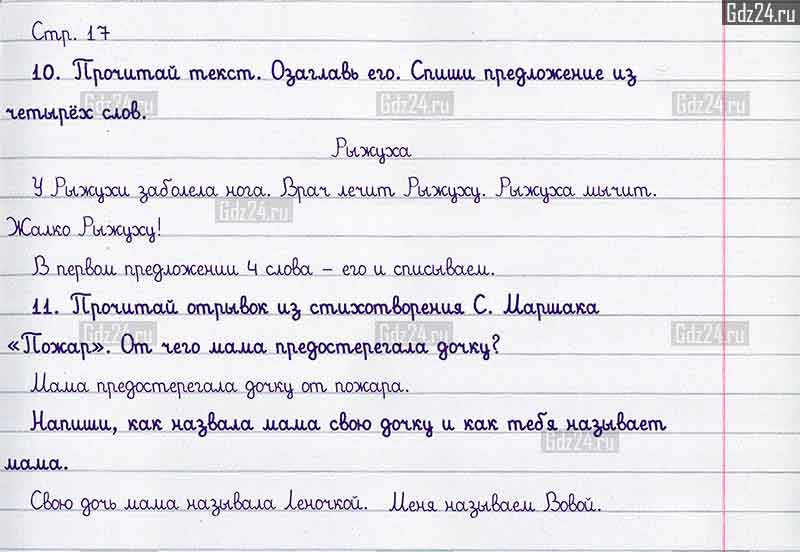 Gdz24.ru
Стр. 17
10. Прочитай текст. Озаглавь его. Спиши предложение из
четырёх слов.
Gdz24.ru Gdz24.ru Gdz24.ru
Рыжуха
У Рыжухи заболела нога. Врач лечит Рыжуху. Рыжуха мычит.
Gdz24.ru
Жалко Рыжуху!
В первом предложении 4 слова – его и списываем.
11. Прочитай отрывок из стихотворения С. Маршака
Gdz24.ru Gdz24.ru Gdz24.ru
«Пожар». От чего мама предостерегала дочку?
Мама предостерегала дочку от пожара.
Напиши, как назвала мама свою дочку и как тебя называет
Gdz24.ru
мама.
Свою дочь мама называла Леночкой. Меня называем Вовой.